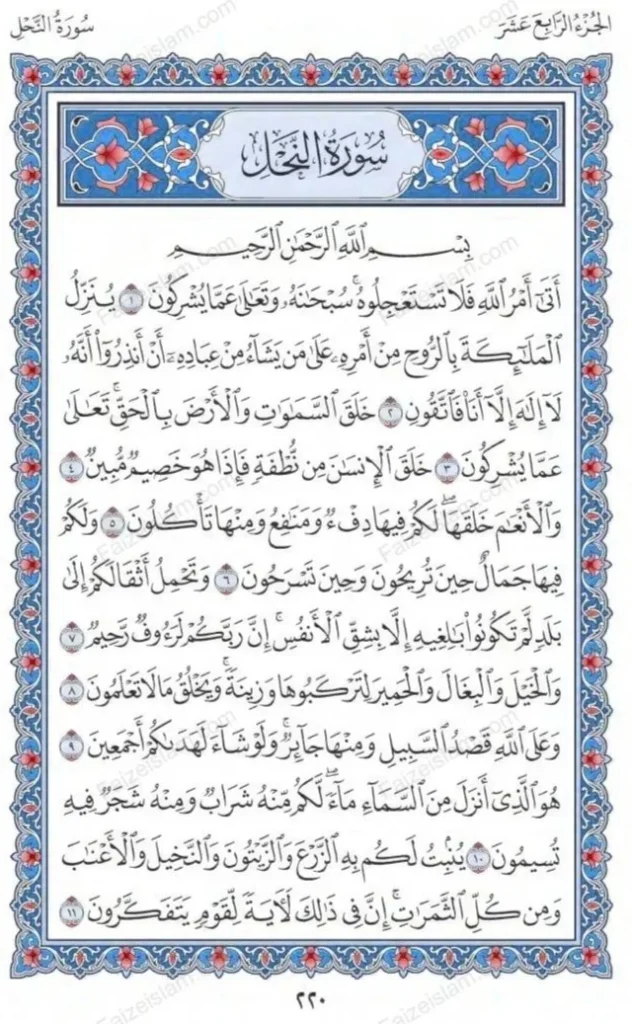 الجُزْءُ الرَّابِعَ عَشَرَ
سُورَةُ النَّحْلِ
سُورَةُ النَّحْلِ
بِسْمِ ٱللَّهِ ٱلرَّحْمَٰنِ ٱلرَّحِيمِ
أَتَىٰٓ أَمْرُ ٱللَّهِ فَلَا تَسْتَعْجِلُوهُ ۚ سُبْحَٰنَهُۥ وَتَعَٰلَىٰ عَمَّا يُشْرِكُونَ ١ يُنَزِّلُ
ٱلْمَلَٰٓئِكَةَ بِٱلرُّوحِ مِنْ أَمْرِهِۦ عَلَىٰ مَن يَشَآءُ مِنْ عِبَادِهِۦٓ أَنْ أَنذِرُوٓا۟ أَنَّهُۥ
لَآ إِلَٰهَ إِلَّآ أَنَا۠ فَٱتَّقُونِ ٢ خَلَقَ ٱلسَّمَٰوَٰتِ وَٱلْأَرْضَ بِٱلْحَقِّ ۚ تَعَٰلَىٰ
عَمَّا يُشْرِكُونَ ٣ خَلَقَ ٱلْإِنسَٰنَ مِن نُّطْفَةٍ فَإِذَا هُوَ خَصِيمٌ مُّبِينٌ ٤
وَٱلْأَنْعَٰمَ خَلَقَهَا ۗ لَكُمْ فِيهَا دِفْءٌ وَمَنَٰفِعُ وَمِنْهَا تَأْكُلُونَ ٥ وَلَكُمْ
فِيهَا جَمَالٌ حِينَ تُرِيحُونَ وَحِينَ تَسْرَحُونَ ٦ وَتَحْمِلُ أَثْقَالَكُمْ إِلَىٰ
بَلَدٍ لَّمْ تَكُونُوا۟ بَٰلِغِيهِ إِلَّا بِشِقِّ ٱلْأَنفُسِ ۚ إِنَّ رَبَّكُمْ لَرَءُوفٌ رَّحِيمٌ ٧
وَٱلْخَيْلَ وَٱلْبِغَالَ وَٱلْحَمِيرَ لِتَرْكَبُوهَا وَزِينَةً ۚ وَيَخْلُقُ مَا لَا تَعْلَمُونَ ٨
وَعَلَى ٱللَّهِ قَصْدُ ٱلسَّبِيلِ وَمِنْهَا جَآئِرٌ ۚ وَلَوْ شَآءَ لَهَدَىٰكُمْ أَجْمَعِينَ ٩
هُوَ ٱلَّذِىٓ أَنزَلَ مِنَ ٱلسَّمَآءِ مَآءً ۖ لَّكُم مِّنْهُ شَرَابٌ وَمِنْهُ شَجَرٌ فِيهِ
تُسِيمُونَ ١٠ يُنۢبِتُ لَكُم بِهِ ٱلزَّرْعَ وَٱلزَّيْتُونَ وَٱلنَّخِيلَ وَٱلْأَعْنَٰبَ
وَمِن كُلِّ ٱلثَّمَرَٰتِ ۗ إِنَّ فِى ذَٰلِكَ لَءَايَةً لِّقَوْمٍ يَتَفَكَّرُونَ ١١
٢٢٠
Faizeislam.com